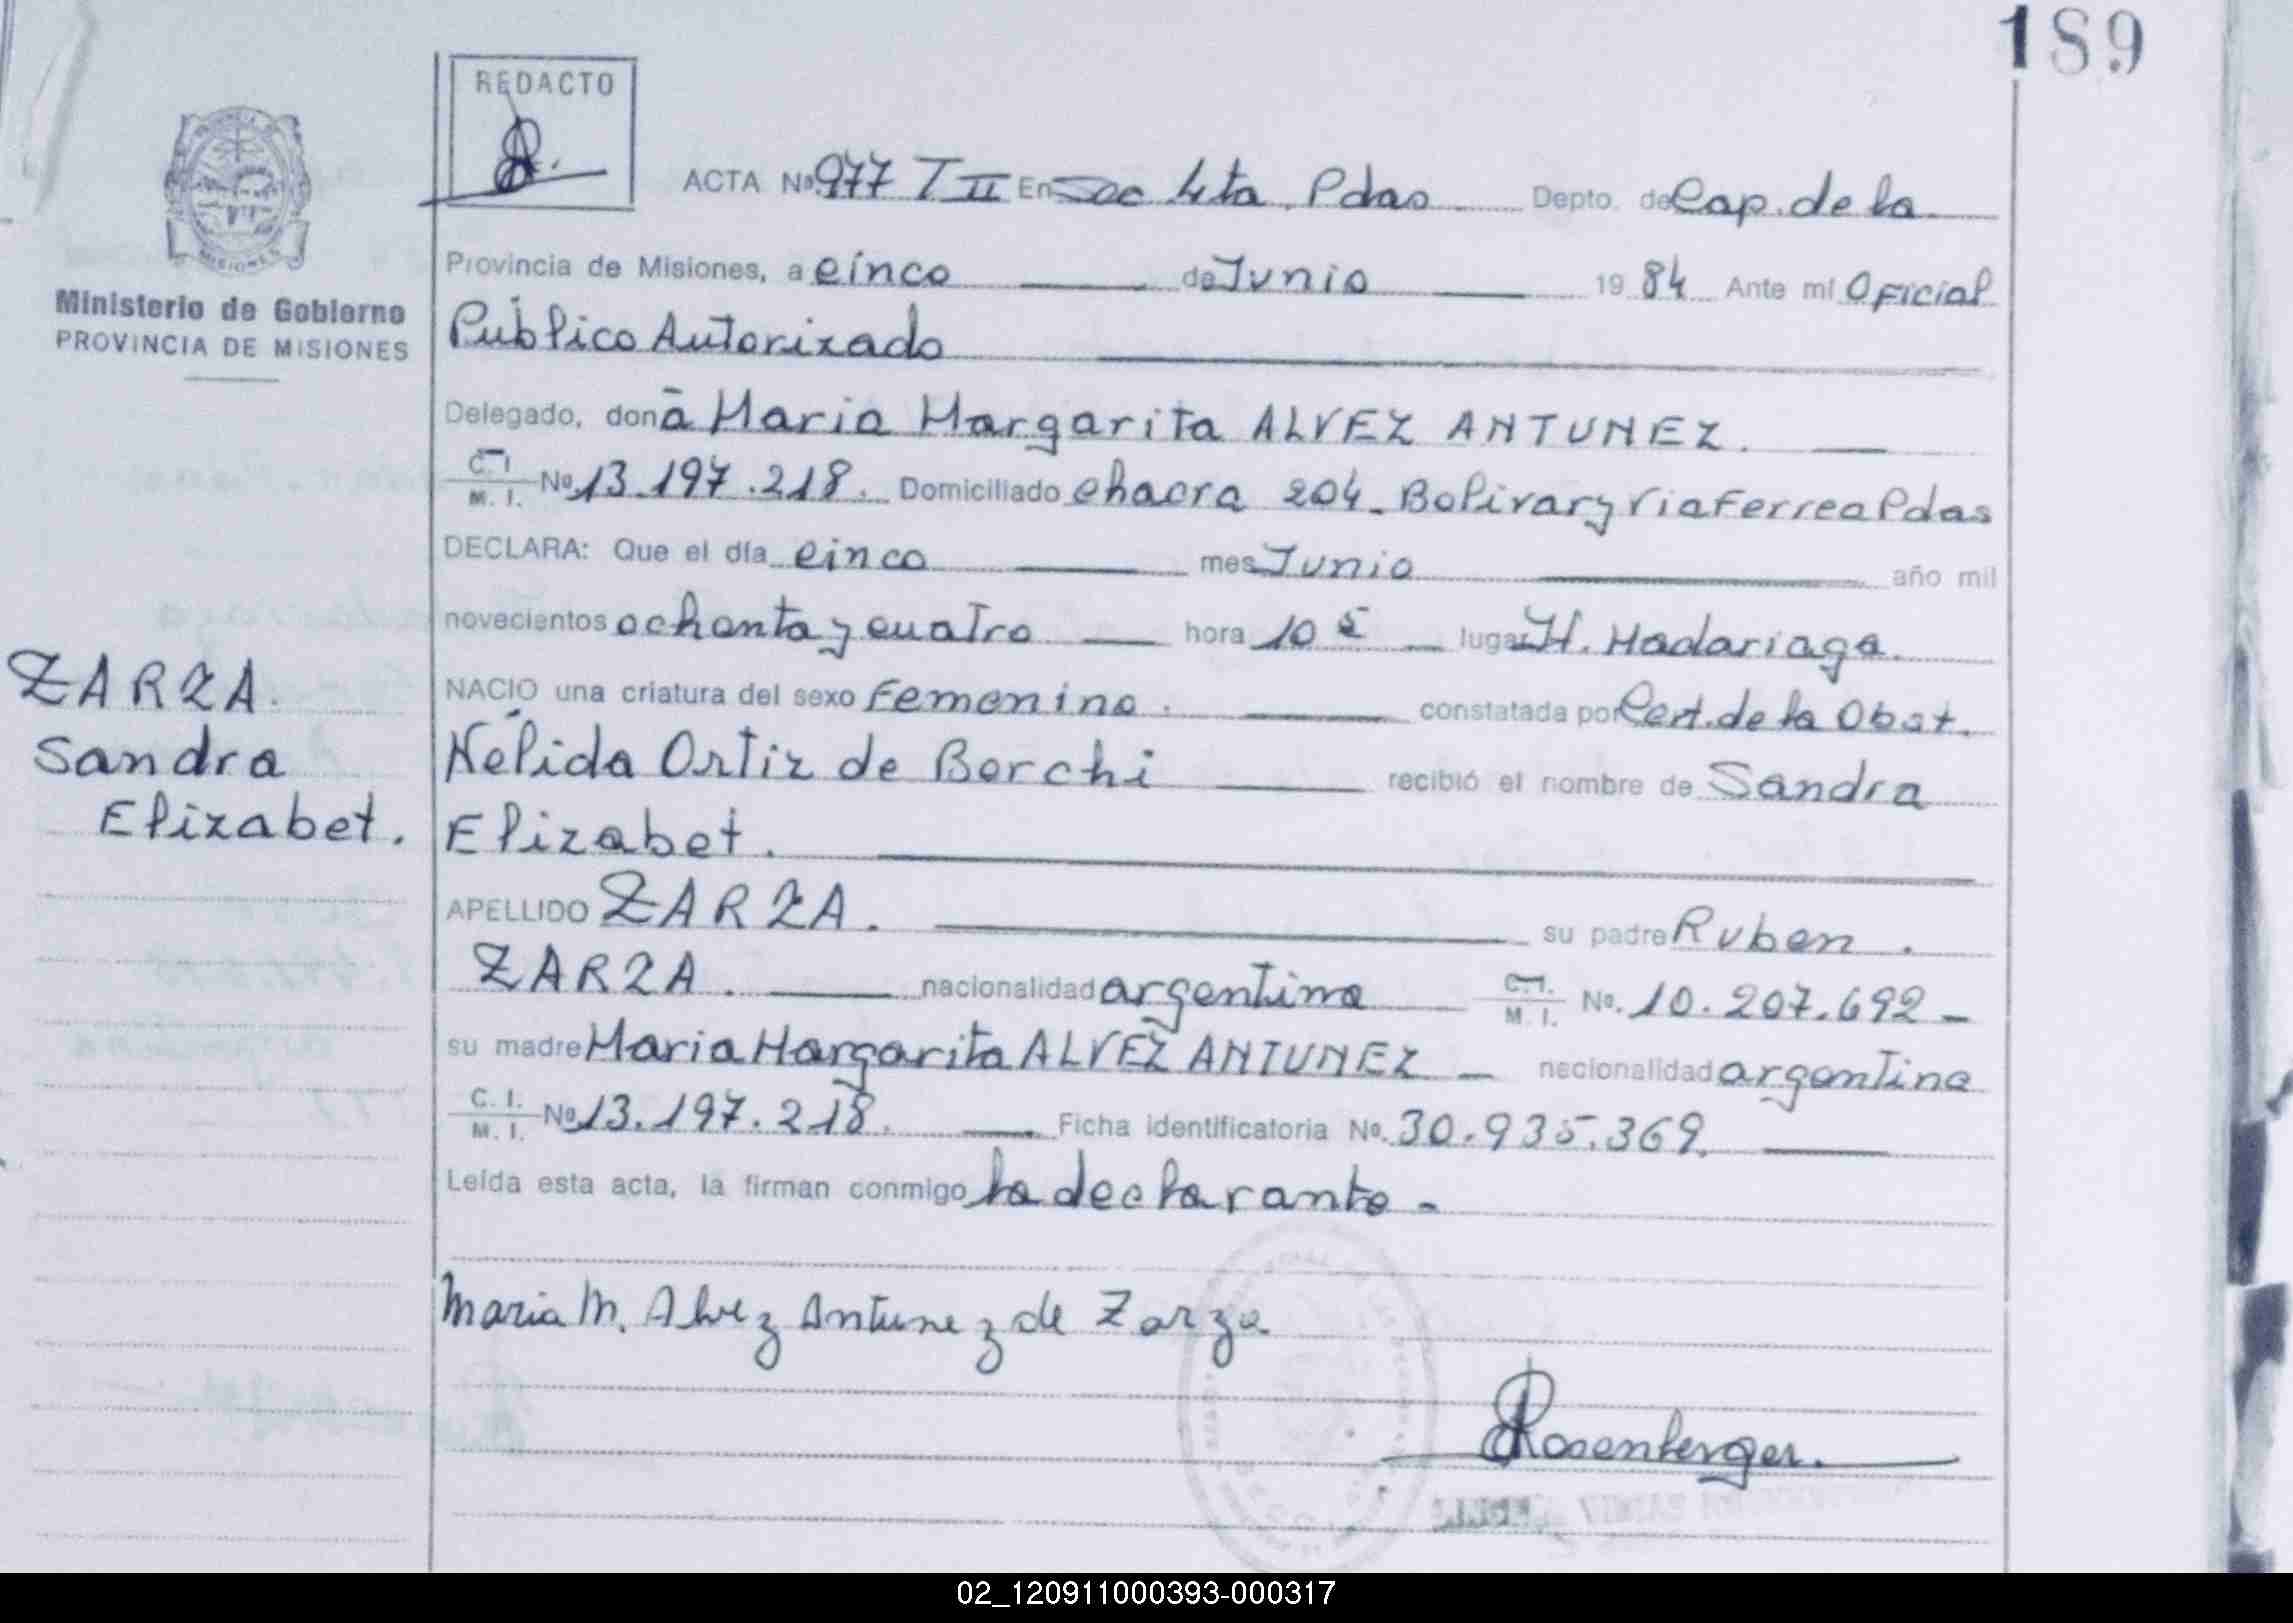 189
REDACTO
ACTA Nº 977 T II En Sec 4ta. Pdas Depto. de Cap. de la
MISIONES
Ministerio de Gobierno
PROVINCIA DE MISIONES
Provincia de Misiones, a cinco de Junio 19 84 Ante mí Oficial
Público Autorizado
Delegado, donã Maria Margarita ALVEZ ANTUNEZ.
C. I. M. I. Nº 13.197.218. Domiciliado chacra 204 - Bolivar y Via Ferrea Pdas
DECLARA: Que el día cinco mes Junio año mil
novecientos ochenta y cuatro hora 10 lugar H. Madariaga.
NACIO una criatura del sexo Femenino. constatada por Cert. de la Obst.
Nélida Ortiz de Borchi recibió el nombre de Sandra
Elizabet.
ZARZA.
Sandra
Elizabet.
APELLIDO ZARZA. su padre Ruben.
ZARZA. nacionalidad argentina C. I. M. I. Nº. 10.207.692 -
su madre Maria Margarita ALVEZ ANTUNEZ - nacionalidad argentina
C. I. M. I. Nº 13.197.218. Ficha identificatoria Nº. 30.935.369.
Leída esta acta, la firman conmigo la declarante -
Maria M. Alvez Antunez de Zarza
Rosenberger.
02_120911000393-000317